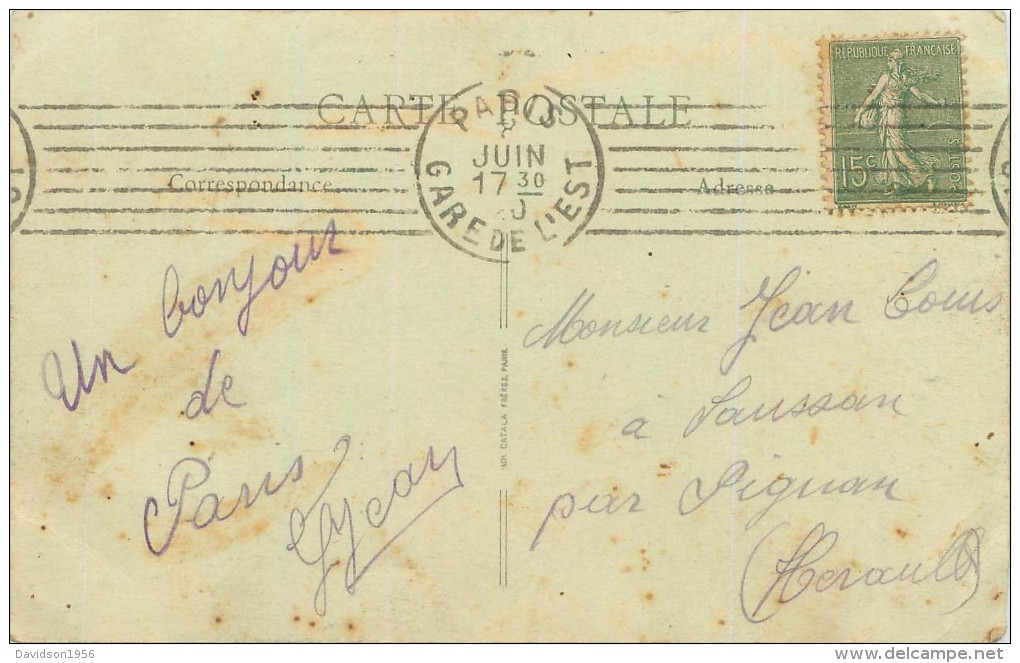 RÉPUBLIQUE FRANÇAISE
15c
POSTES
CARTE POSTALE
PARIS
8
JUIN
17 30
20
GARE DE L'EST
Correspondance
Adresse
Un bonjour
de
Paris
Monsieur Jean
à Saussan
par Pignan
(Herault)
IMP. CATALA FRÈRES, PARIS
Davidson1956
delcampe.net